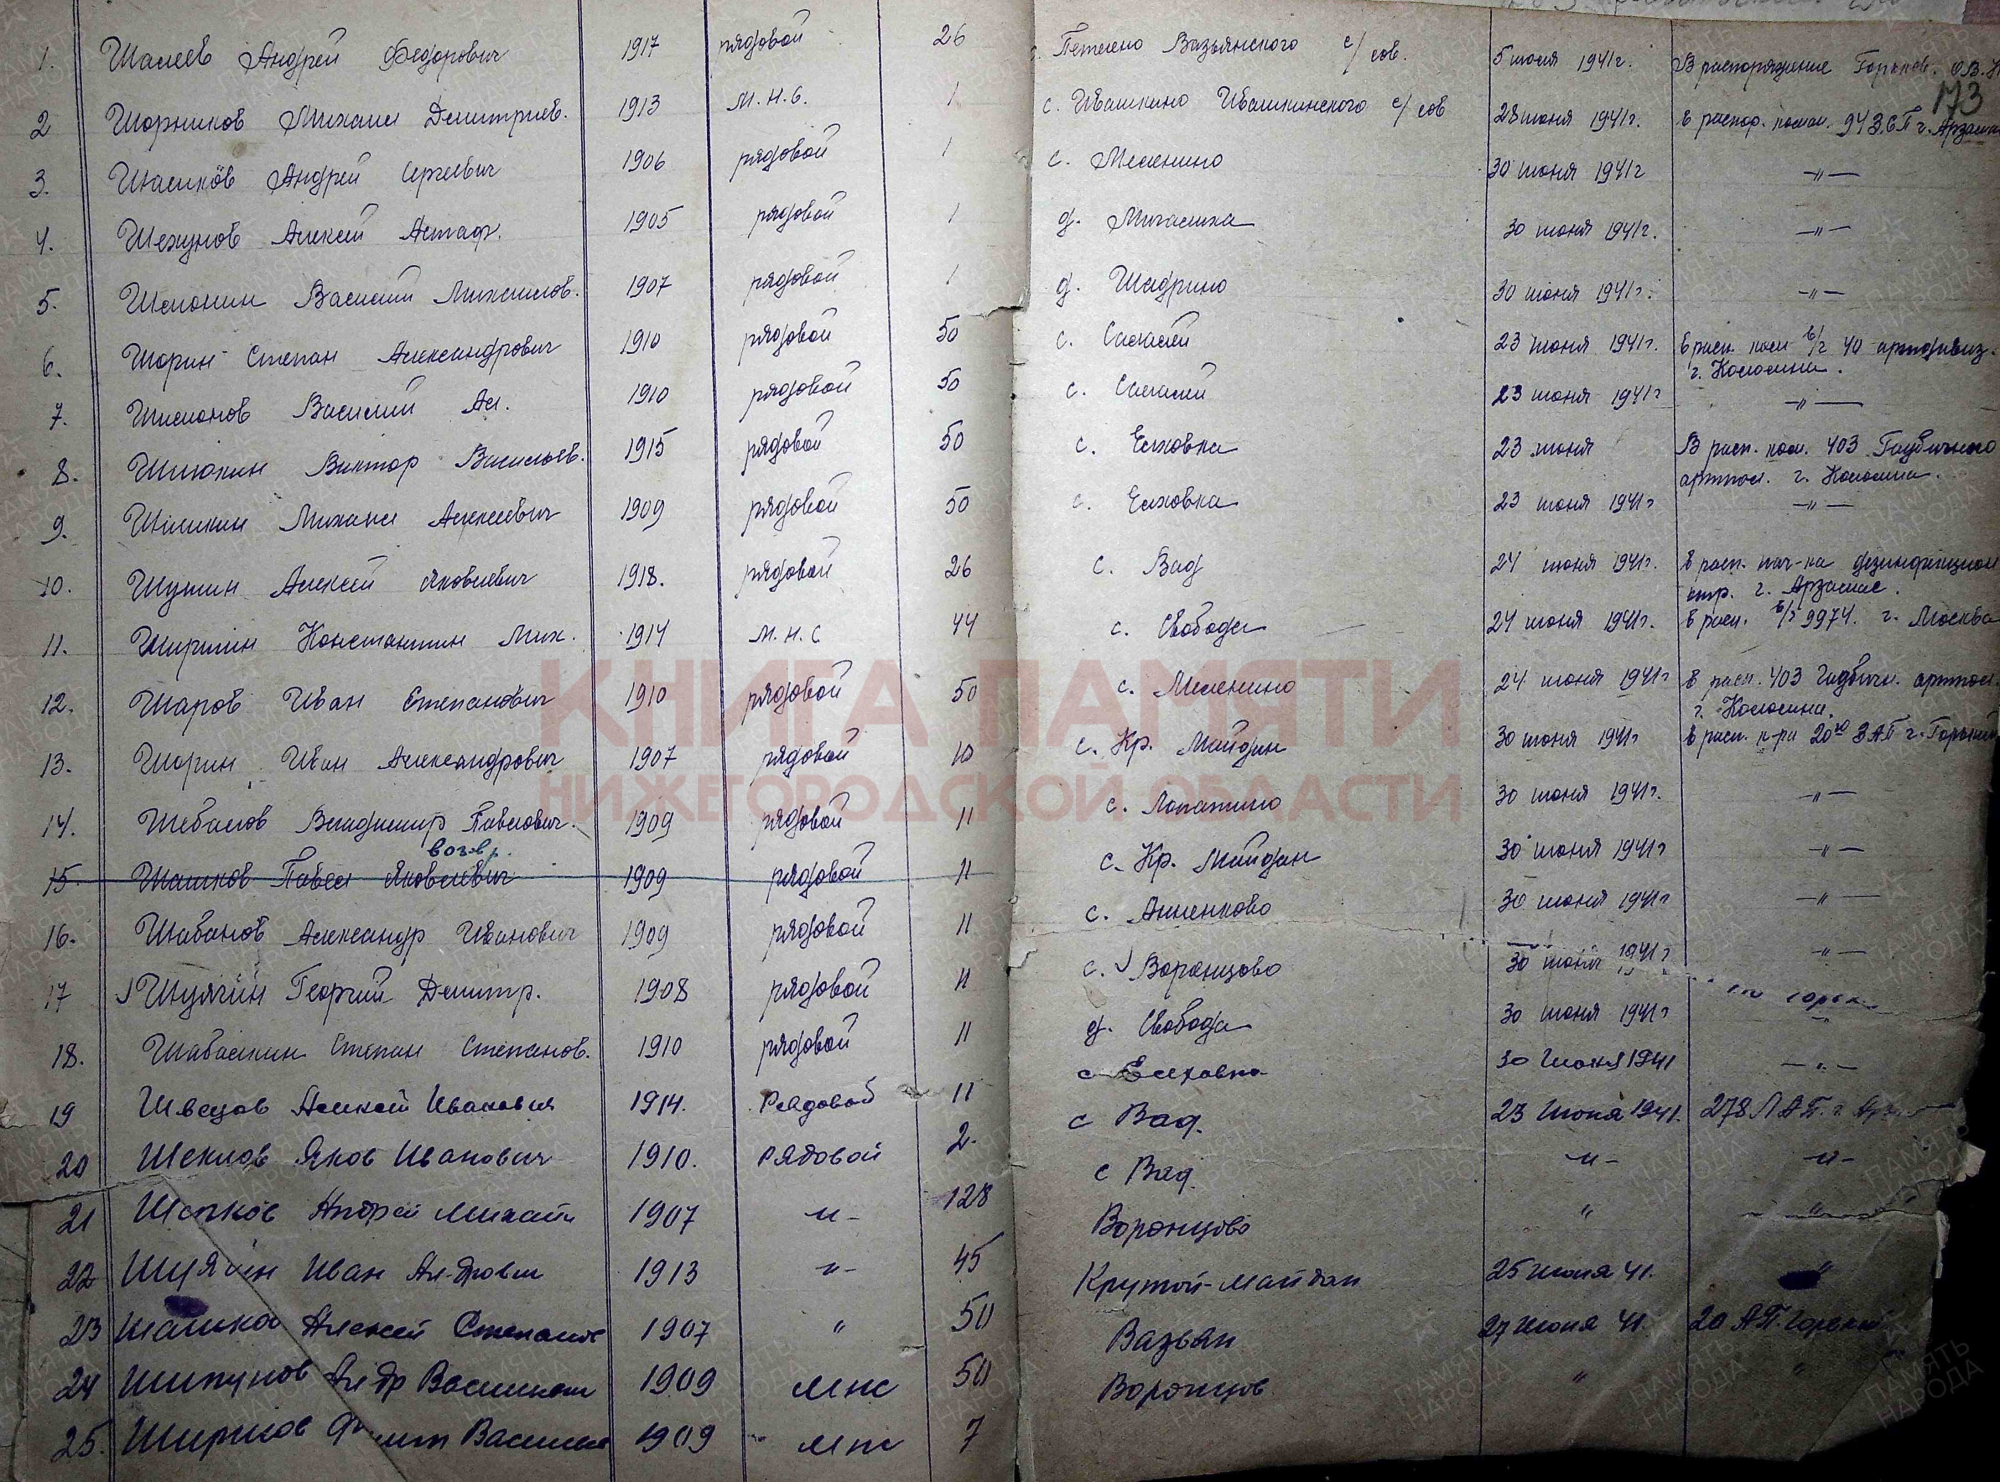 173
1. Шалеев Андрей Федорович 1917 рядовой 26 Петлено Вазьянского с/сов. 5 июня 1941г. В распоряжение Горьков.
2 Шорников Михаил Дмитриев. 1913 м.н.с. 1 с. Ивашкино Ивашкинского с/сов 28 июня 1941г. в распор. 943.СП г. Арзамас
3. Андрей Сергеевич 1906 рядовой 1 с. Меленино 30 июня 1941г —〃—
4. Шехунов Алексей Астаф. 1905 рядовой 1 д. 30 июня 1941г. —〃—
5. Василий Михайлов. 1907 рядовой 1 д. Шадрино 30 июня 1941г. —〃—
6. Шорин Степан Александрович 1910 рядовой 50 с. Салалей 23 июня 1941г. в расп. в/ч 40 артдивиз.
г. Коломна.
7. Василий Ал. 1910 рядовой 50 с. Салалей 23 июня 1941г —〃—
8. Виктор Васильев. 1915 рядовой 50 с. Елховка 23 июня В расп. ком. 403 Гаубичного
артпол. г. Коломна.
9. Шишкин Михаил Алексеевич 1909 рядовой 50 с. Елховка 23 июня 1941г —〃—
10. Алексей Яковлевич 1918. рядовой 26 с. Вад 24 июня 1941г. в расп. нач-ка дезинфекцион
г. Арзамас.
11. Константин Мих. 1914 м.н.с 44 с. Свобода 24 июня 1941г. в расп. в/ч 9974. г. Москва
12. Шаров Иван Степанович 1910 рядовой 50 с. Меленино 24 июня 1941г в расп. 403 Гаубичн. артпол.
г. Коломна.
13. Шорин Иван Александрович 1907 рядовой 10 с. Кр. Майдан 30 июня 1941г в расп. к-ра 20го ЗАП г. Горький
14. Шебалов Владимир Павлович. 1909 рядовой 11 с. Лопатино 30 июня 1941г. —〃—
возвр.
15. Шашков Павел Яковлевич 1909 рядовой 11 с. Кр. Майдан 30 июня 1941г —〃—
16. Шабанов Александр Иванович 1909 рядовой 11 с. Анненково 30 июня 1941г —〃—
17 Шулягин Георгий Дмитр. 1908 рядовой 11 с. Воронцово 30 июня 1941г —〃—
18. Шабалкин Степан Степанов. 1910 рядовой 11 д. Свобода 30 июня 1941г
19 Швецов Алексей Иванович 1914. Рядовой 11 с Елховка 30 июня 1941 —〃—
20 Шеклов Яков Иванович 1910. рядовой 2. с Вад. 23 июня 1941. 278 ЛАП. г.
21 Андрей Михайл 1907 —〃— 128 с Вад. —〃— —〃—
22 Шулягин Иван Ал-дрович 1913 —〃— 45 Воронцово 〃 〃
23 Алексей Степанов 1907 〃 50 Крутой-майдан 25 июня 41. 〃
24 Шипунов Ал-др Васильевич 1909 мнс 50 Вазьян 27 июня 41. 20 АП. Горький
25. Ширков Васильев 1909 мнс 7 Воронцов 〃 〃
КНИГА ПАМЯТИ
НИЖЕГОРОДСКОЙ ОБЛАСТИ
ПАМЯТЬ НАРОДА